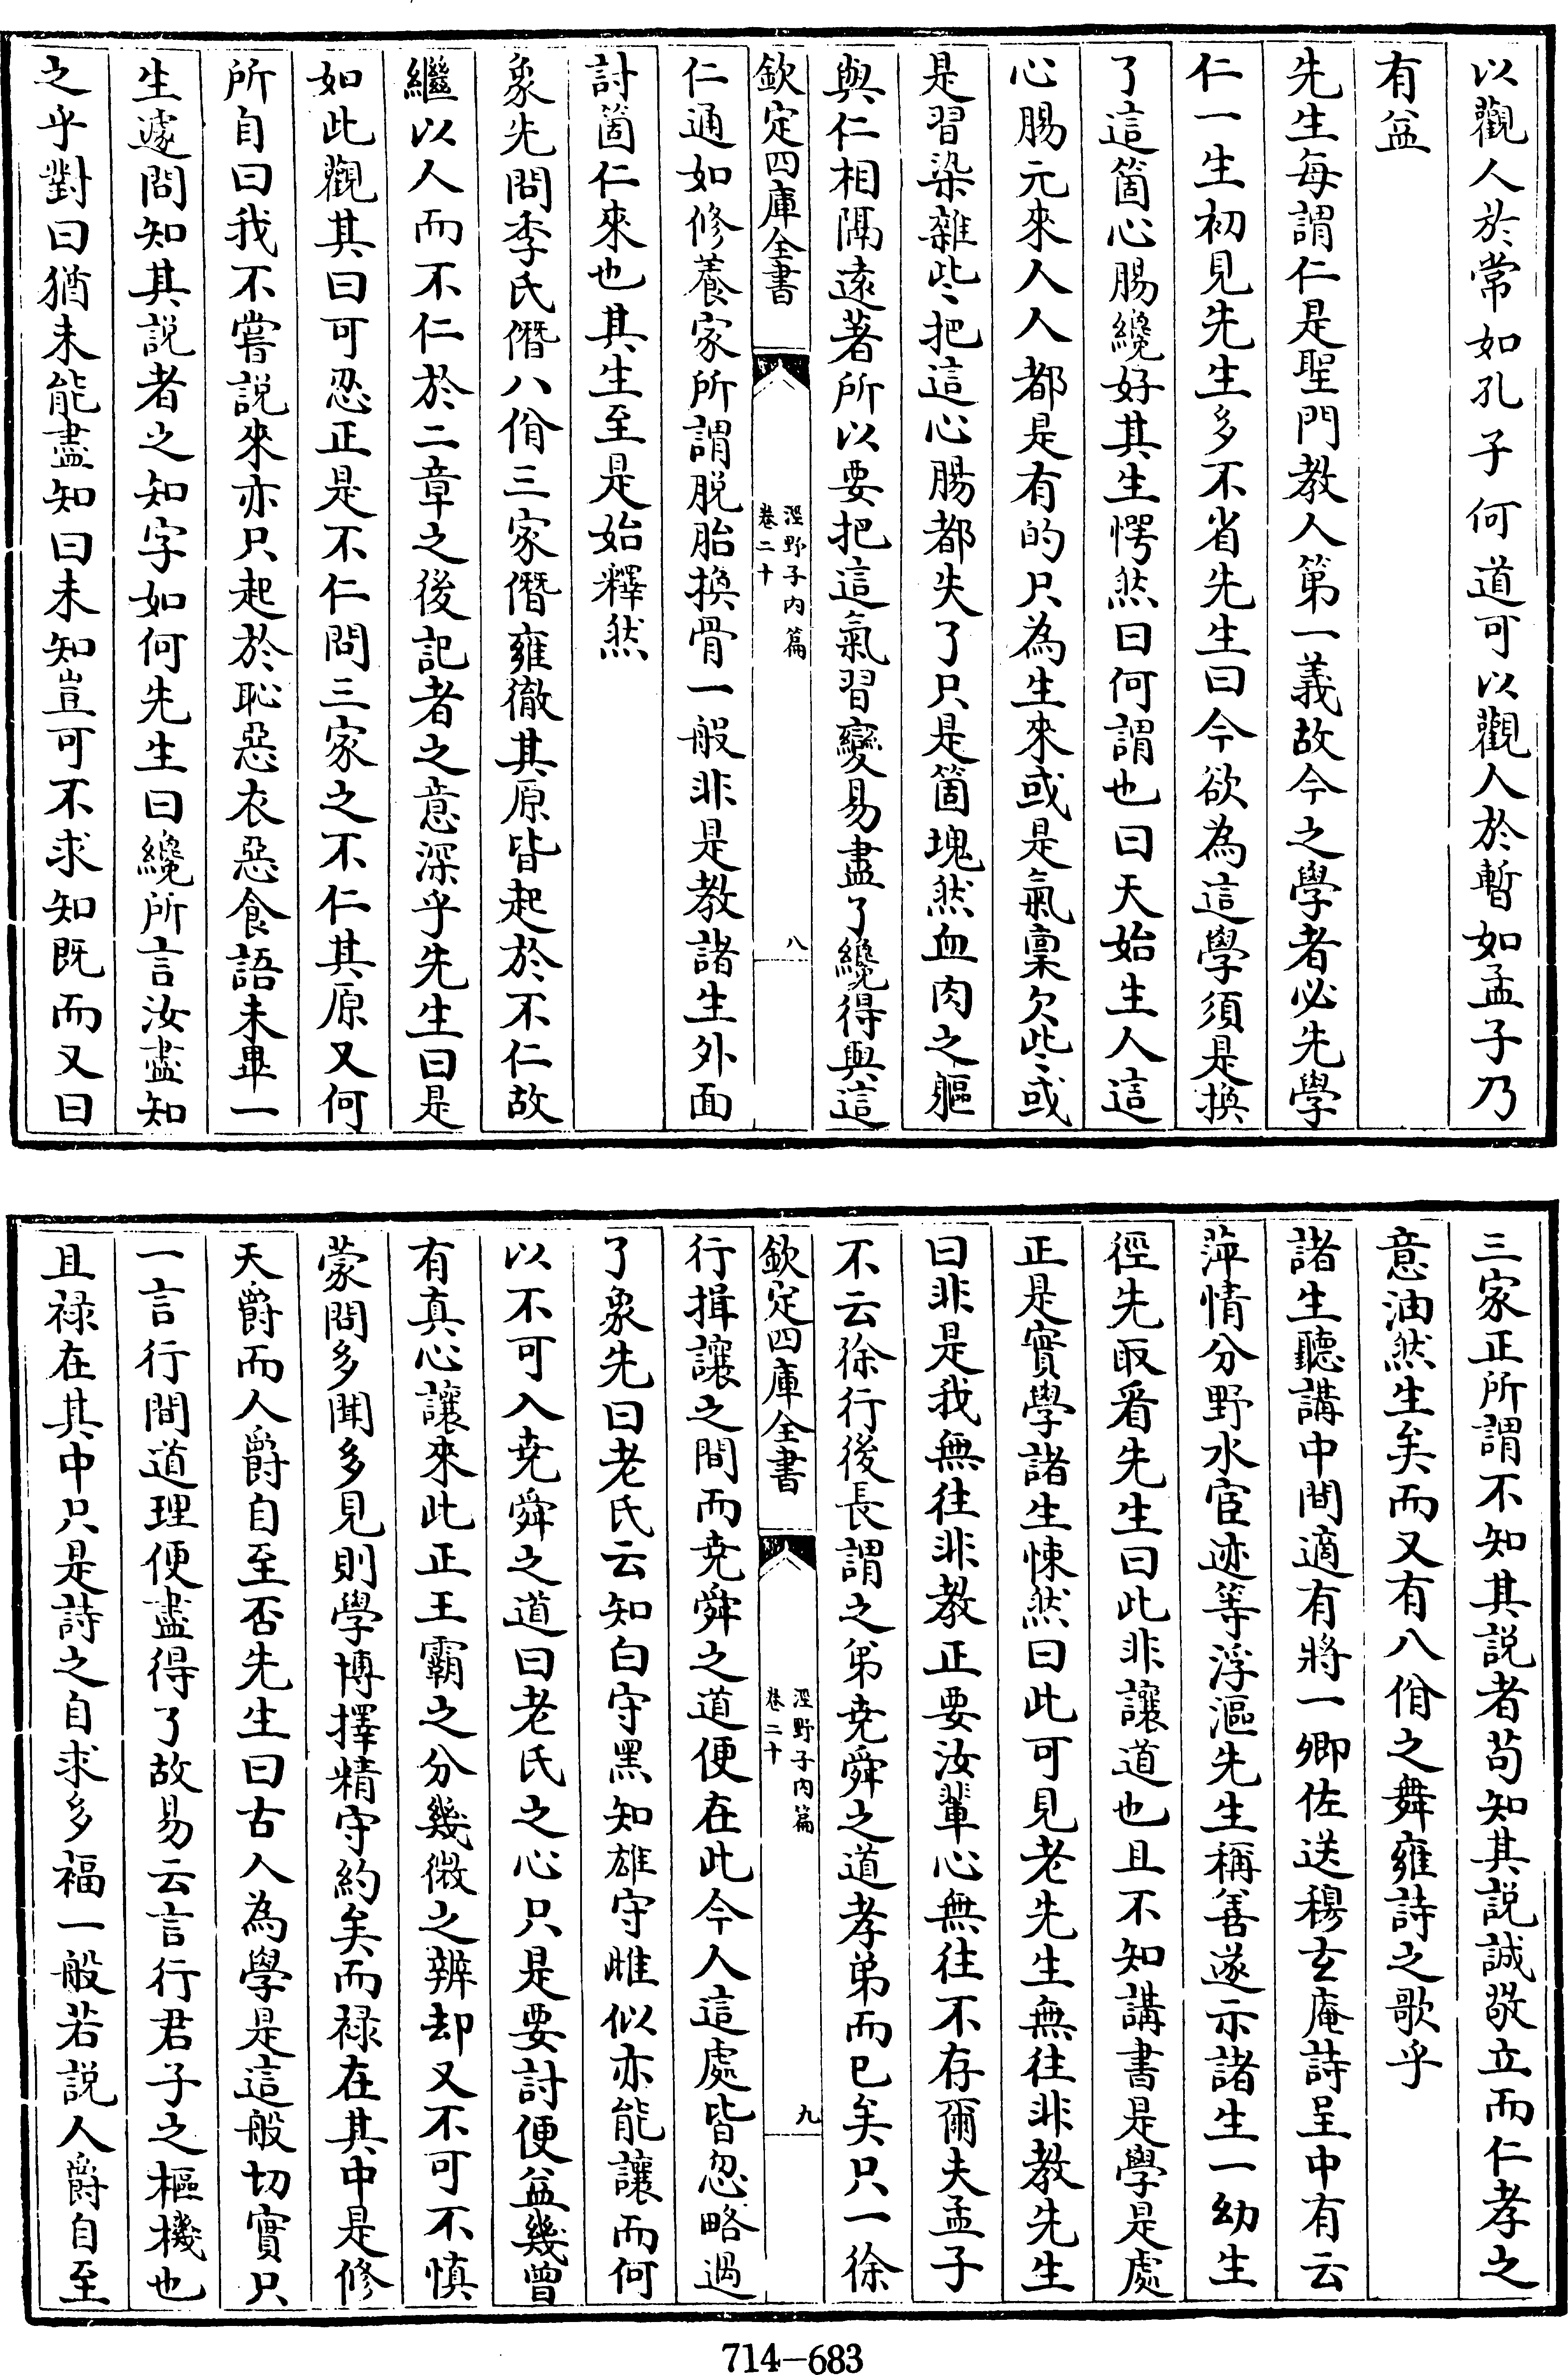 以觀人於常如孔子何道可以觀人於暫如孟子乃
有益
先生每謂仁是聖門教人第一義故今之學者必先學
仁一生初見先生多不省先生曰今欲為這學須是換
了這箇心腸纔好其生愕然曰何謂也曰天始生人這
心腸元來人人都是有的只為生來或是氣稟欠些或
是習染雜些把這心腸都失了只是箇塊然血肉之軀
與仁相隔遠著所以要把這氣習變易盡了纔得與這
欽定四庫全書
涇野子内篇
卷二十
八
仁通如修養家所謂脱胎換骨一般非是教諸生外面
討箇仁來也其生至是始釋然
象先問季氏僭八佾三家僭雍徹其原皆起於不仁故
繼以人而不仁於二章之後記者之意深乎先生曰是
如此觀其曰可忍正是不仁問三家之不仁其原又何
所自曰我不嘗説來亦只起於恥惡衣惡食語未畢一
生遽問知其説者之知字如何先生曰纔所言汝盡知
之乎對曰猶未能盡知曰未知豈可不求知既而又曰
三家正所謂不知其説者苟知其説誠敬立而仁孝之
意油然生矣而又有八佾之舞雍詩之歌乎
諸生聽講中間適有將一卿佐送穆玄庵詩呈中有云
萍情分野水宦迹等浮漚先生稱善遂示諸生一幼生
徑先取看先生曰此非讓道也且不知講書是學是處
正是實學諸生悚然曰此可見老先生無往非教先生
曰非是我無往非教正要汝輩心無往不存爾夫孟子
不云徐行後長謂之弟堯舜之道孝弟而已矣只一徐
欽定四庫全書
涇野子内篇
卷二十
九
行揖讓之間而堯舜之道便在此今人這處皆忽略過
了象先曰老氏云知白守黑知雄守雌似亦能讓而何
以不可入堯舜之道曰老氏之心只是要討便益幾曾
有真心讓來此正王霸之分幾微之辨却又不可不慎
蒙問多聞多見則學博擇精守約矣而禄在其中是修
天爵而人爵自至否先生曰古人為學是這般切實只
一言行間道理便盡得了故易云言行君子之樞機也
且禄在其中只是詩之自求多福一般若説人爵自至
714—683